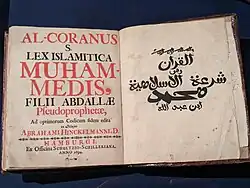 AL-CORANUS
S.
LEX ISLAMITICA
MUHAM-
MEDIS,
FILII ABDALLÆ
Pseudoprophetæ,
Ad optimorum Codicum fidem edita
ABRAHAMI HINCKELMANNI, D.
HAMBURGI,
Ex Officina SCHULTZIO-SCHILLERIANA,
ANNO 1694.
القران
شرعة الاسلامية
محمد
ابن عبد الله